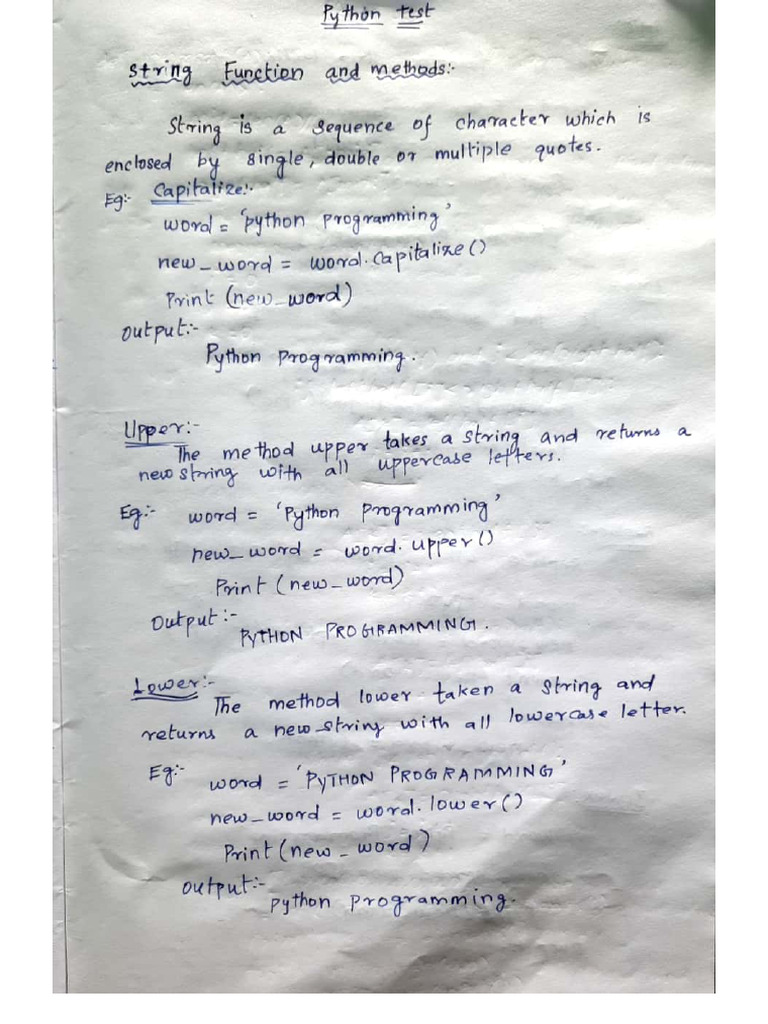 Python test
String Function and methods:-
String is a sequence of character which is
enclosed by single, double or multiple quotes.
Eg:- Capitalize:-
word = 'python programming'
new_word = word.capitalize()
Print (new_word)
output:-
Python programming.
Upper:-
The method upper takes a string and returns a
new string with all uppercase letters.
Eg:- word = 'Python programming'
new_word = word.upper()
Print (new_word)
Output:-
PYTHON PROGRAMMING.
Lower:-
The method lower taken a string and
returns a new string with all lowercase letter.
Eg:- word = 'PYTHON PROGRAMMING'
new_word = word.lower()
Print (new_word)
output:-
python programming.